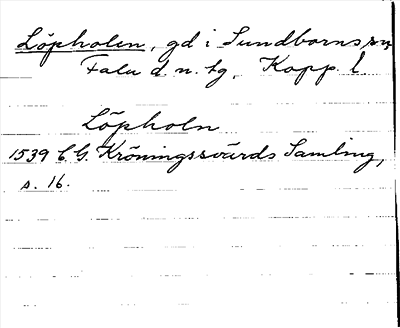 Löpholen, gd i Sundborns sn,
Falu d. n. tg, Kopp. l.
Löpholn
1539 C. G. Kröningssvärds Samling,
s. 16.